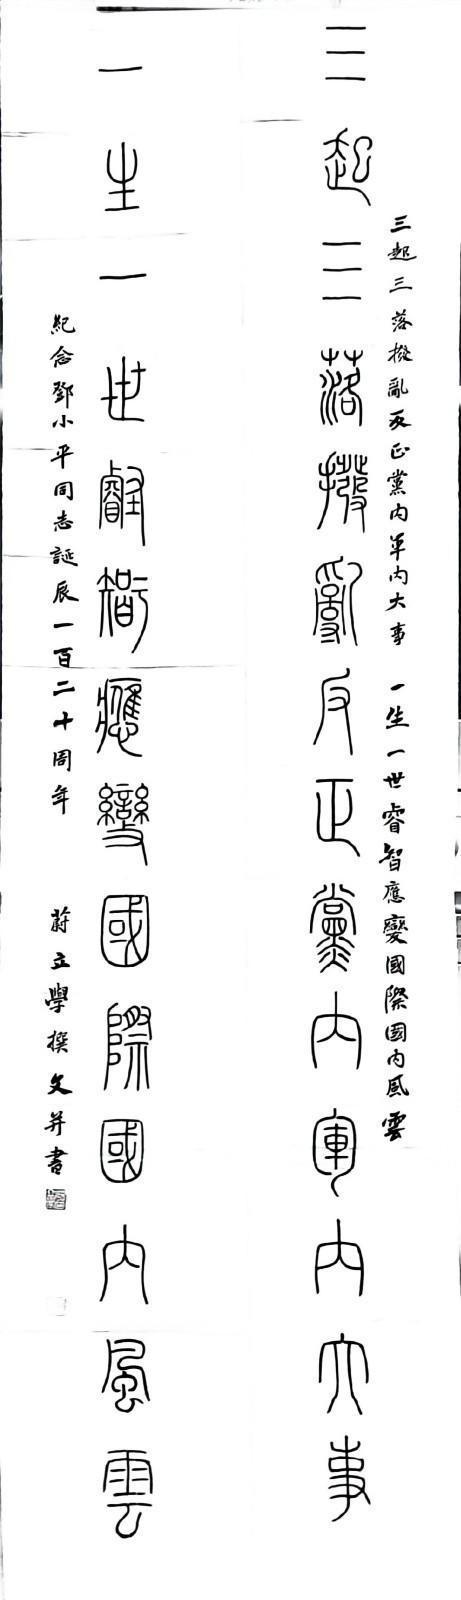 三起三落撥亂反正黨內軍內大事
一生一世睿智應變國際國內風雲
三起三落撥亂反正黨内軍内大事 一生一世睿智應變國際國内風雲
紀念鄧小平同志誕辰一百二十周年
蔚立學撰文并書